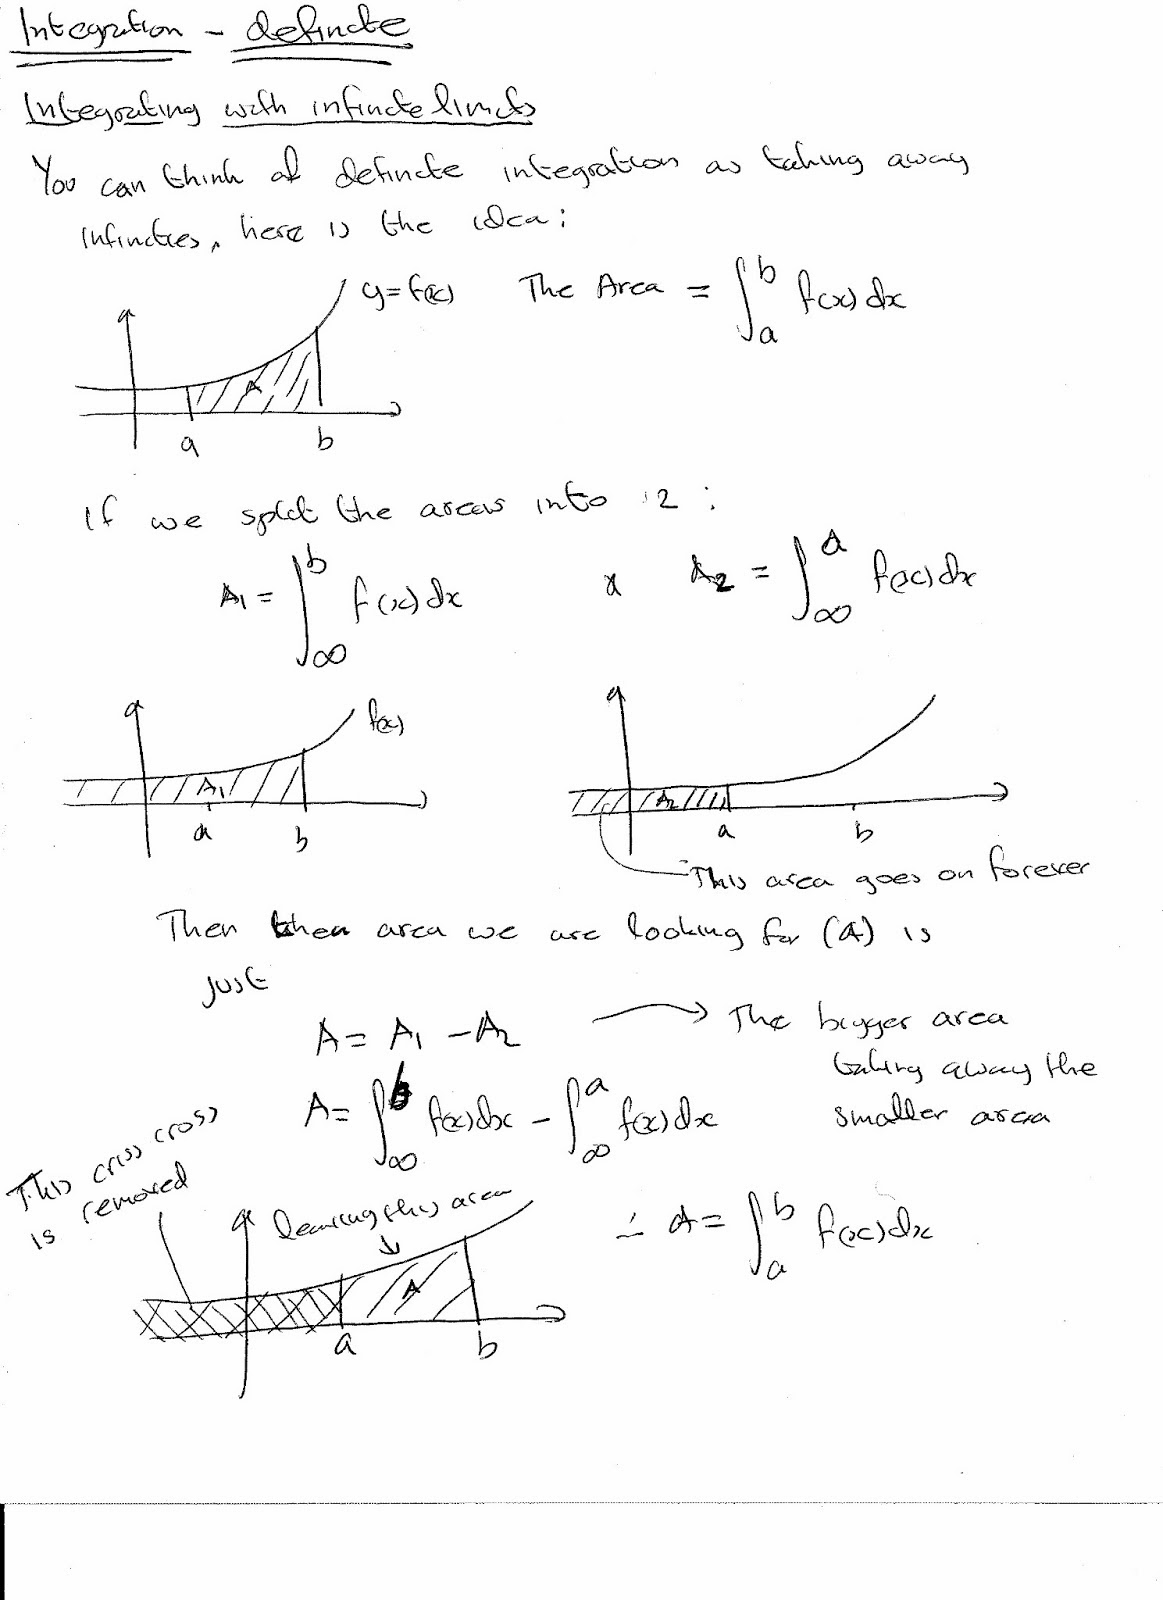 Integration - definite
Integrating with infinite limits
You can think of definite integration as taking away
infinities, here is the idea:
y=f(x) The Area = ∫_a^b f(x)dx
A
a b
If we split the areas into 2:
A₁ = ∫_∞^b f(x)dx & A₂ = ∫_∞^a f(x)dx
f(x)
A₁ A₂
a b a b
This area goes on forever
Then then area we are looking for (A) is
just
A = A₁ - A₂ → The bigger area
taking away the
smaller area
A = ∫_∞^b f(x)dx - ∫_∞^a f(x)dx
This criss cross
is removed
leaving this area
∴ A = ∫_a^b f(x)dx
A
a b